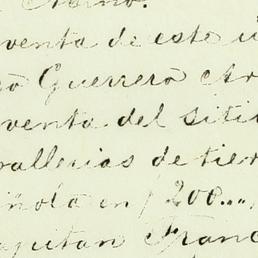 venta de este
Guerrero
venta del siti
allerias de tier
ñola en $ 200...
apitan Franc